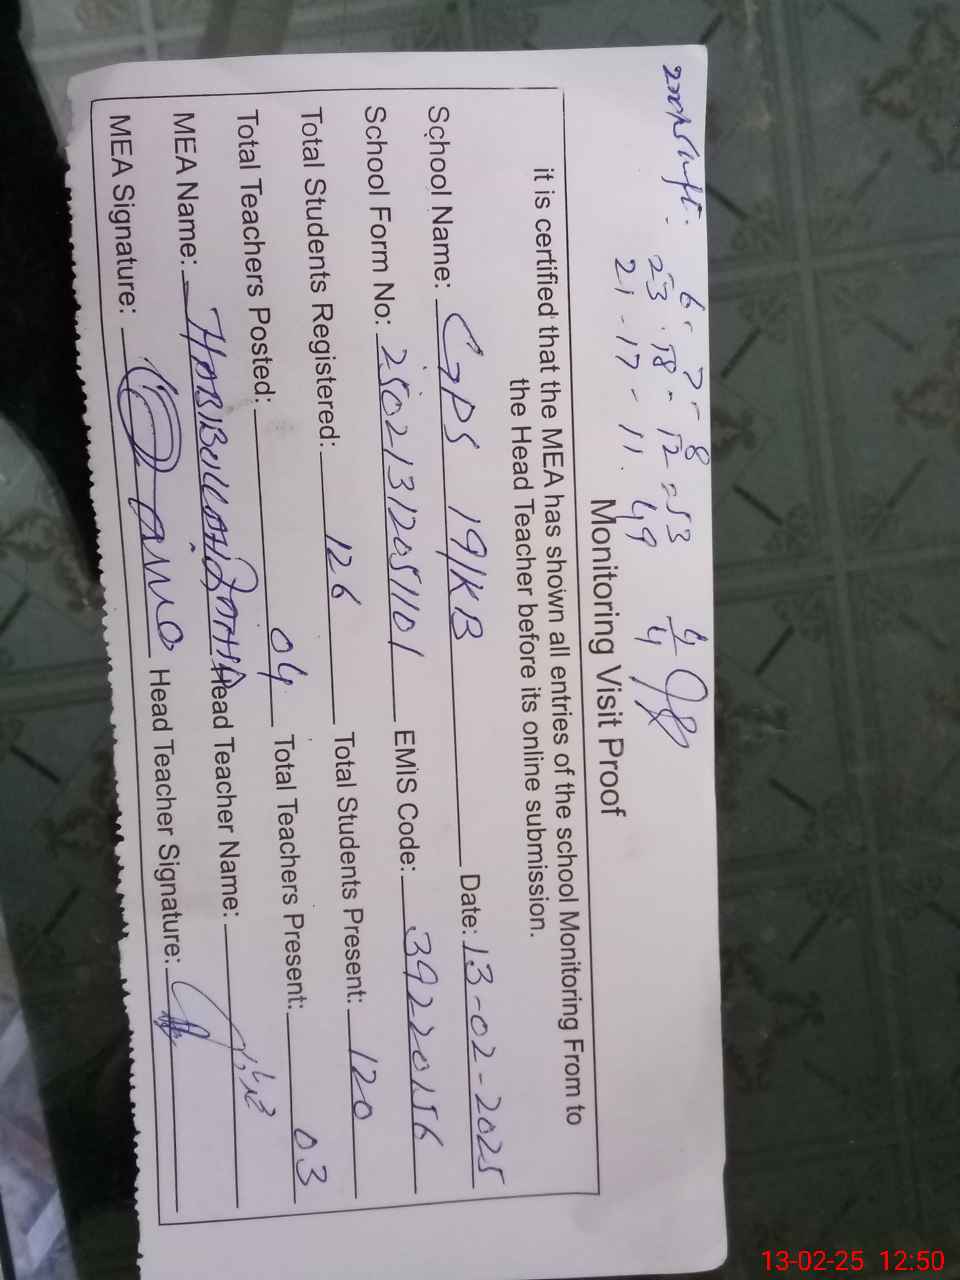 6 - 7 - 8
23 - 18 - 12 = 53
21 - 17 - 11 . 49
Monitoring Visit Proof
it is certified that the MEA has shown all entries of the school Monitoring From to
the Head Teacher before its online submission.
School Name: GPS 19/KB Date: 13-02-2025
School Form No: 25021312051101 EMIS Code: 39220156
Total Students Registered: 126 Total Students Present: 120
Total Teachers Posted: 04 Total Teachers Present: 03
MEA Name: HABIBULLAH Head Teacher Name:
MEA Signature: Head Teacher Signature:
13-02-25 12:50